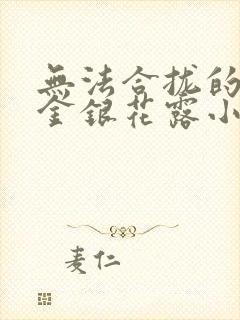 無法合拢的
金銀花露小
麦仁